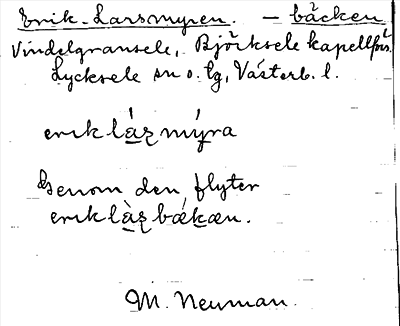 Erik-Larsmyren. – bäcken
Vindelgransele, Björksele kapellförs.
Lycksele sn o. tg, Västerb. l.
erik làʐmýra
Genom den flyter
erik làʐbǽkæn.
M. Neuman.